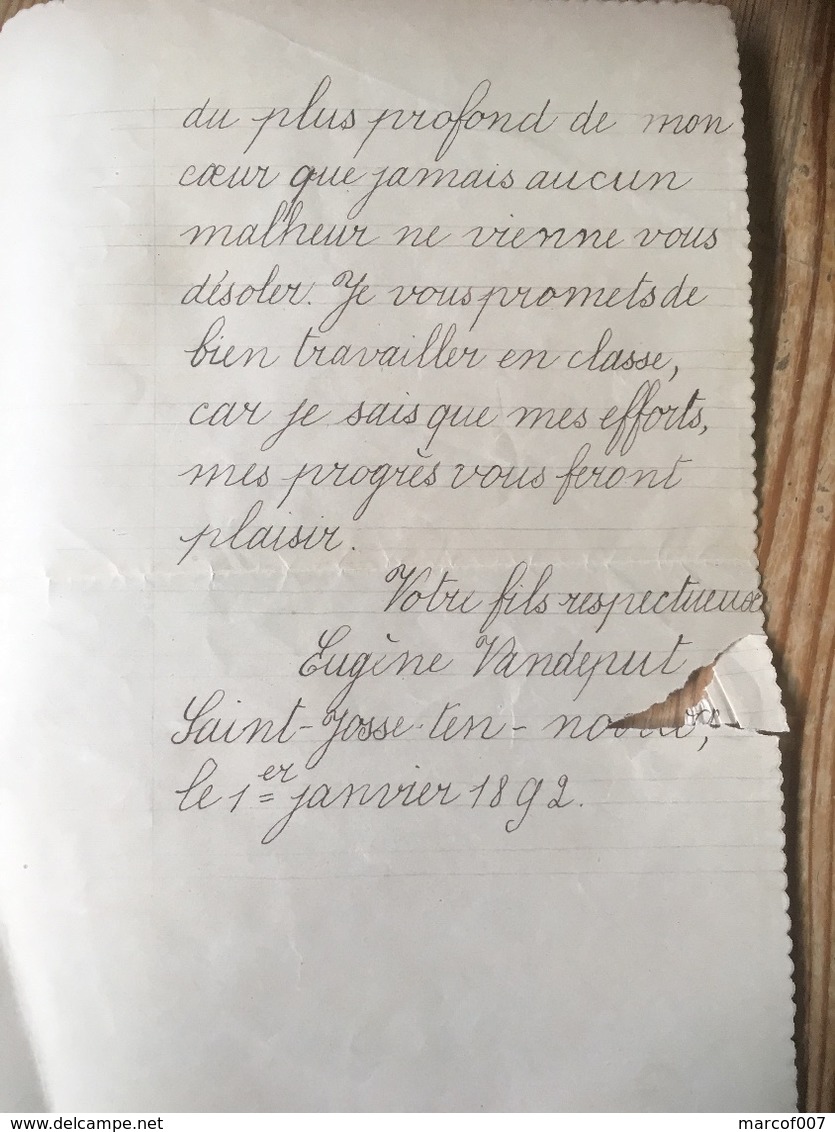 du plus profond de mon
cœur que jamais aucun
malheur ne vienne vous
désoler. Je vous promets de
bien travailler en classe,
car je sais que mes efforts,
mes progrès vous feront
plaisir.
Votre fils respectueux
Eugène Vandeput
Saint-Josse-ten-
le 1er janvier 1892.
delcampe.net
marcof007